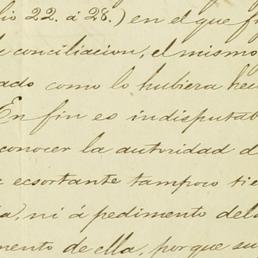 lio 22. á 28.) en el que f
e conciliacion, el mismo
ado como lo hubiera hec
En fin es indisputab
conocer la autoridad d
e ecsortante tampoco tie
a, ni á pedimento del
mento de ella, porque su